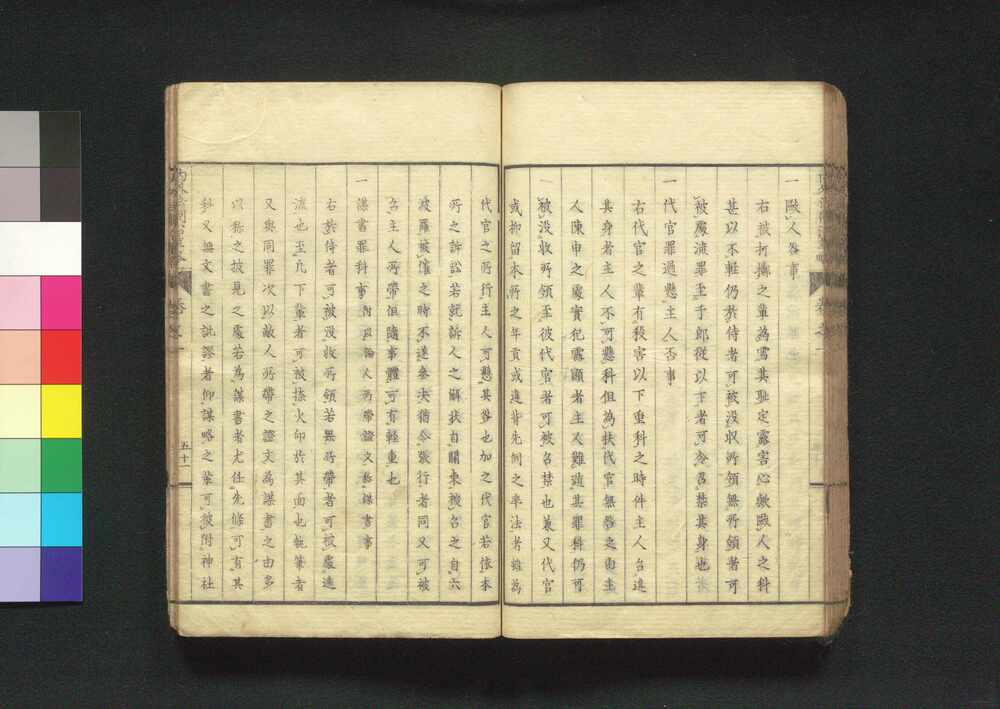 一 毆人咎事
右被打擲之輩為雪其恥定露害心歟毆人之科
甚以不軽仍於侍者可被没収所領無所領者可
被處流罪至于郎従以下者可令召禁其身也
一 代官罪過懸主人否事
右代官之輩有殺害以下重科之時件主人召進
其身者主人不可懸科但為扶代官無咎之由主
人陳申之處實犯露顕者主人難遁其罪科仍可
被没収所領至彼代官者可被召禁也兼又代官
或抑留本所之年貢或違背先例之率法者雖為
代官之所行主人可懸其咎也加之代官若依本
所之訴訟若就訴人之解状自關東被召之自六
波羅被催之時不遂参决猶令張行者同又可被
召主人所帶但隨事體可有軽重也
一 謀書罪科事 附以論人所帶證文称謀書事
右於侍者可被没収所領若無所帶者可被處遠
流也至凡下輩者可被捺火印於其面也執筆者
又與同罪次以敵人所帶之證文為謀書之由多
以称之披見之處若為謀書者尤任先條可有其
科又無文書之訛謬者仰謀略之輩可被附神社
五十一